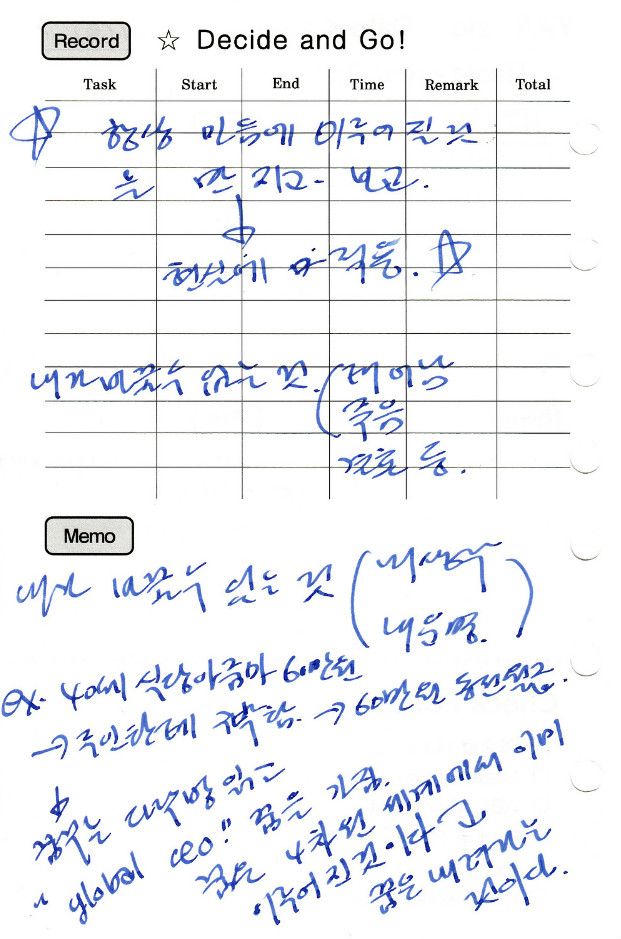 Record ☆ Decide and Go!
Task Start End Time Remark Total
☆ 항상 믿음에 이루어질 것
는 만지고 보고.
↓
현실에 움직임. ☆
내가 바꿀수 없는 것. (태어남
죽음
결혼 등.
Memo
내가 바꿀수 있는 것 (내생각
내운명.)
ex. 40세 식당아줌마 60만원
→ 주인한테 구박함. → 60만원 동전월급.
↓
꿈꾸는 다락방 읽고
"global CEO" 꿈을 가짐.
꿈은 4차원 세계에서 이미
이루어진것이다 고
꿈은 내려지는
것이다.